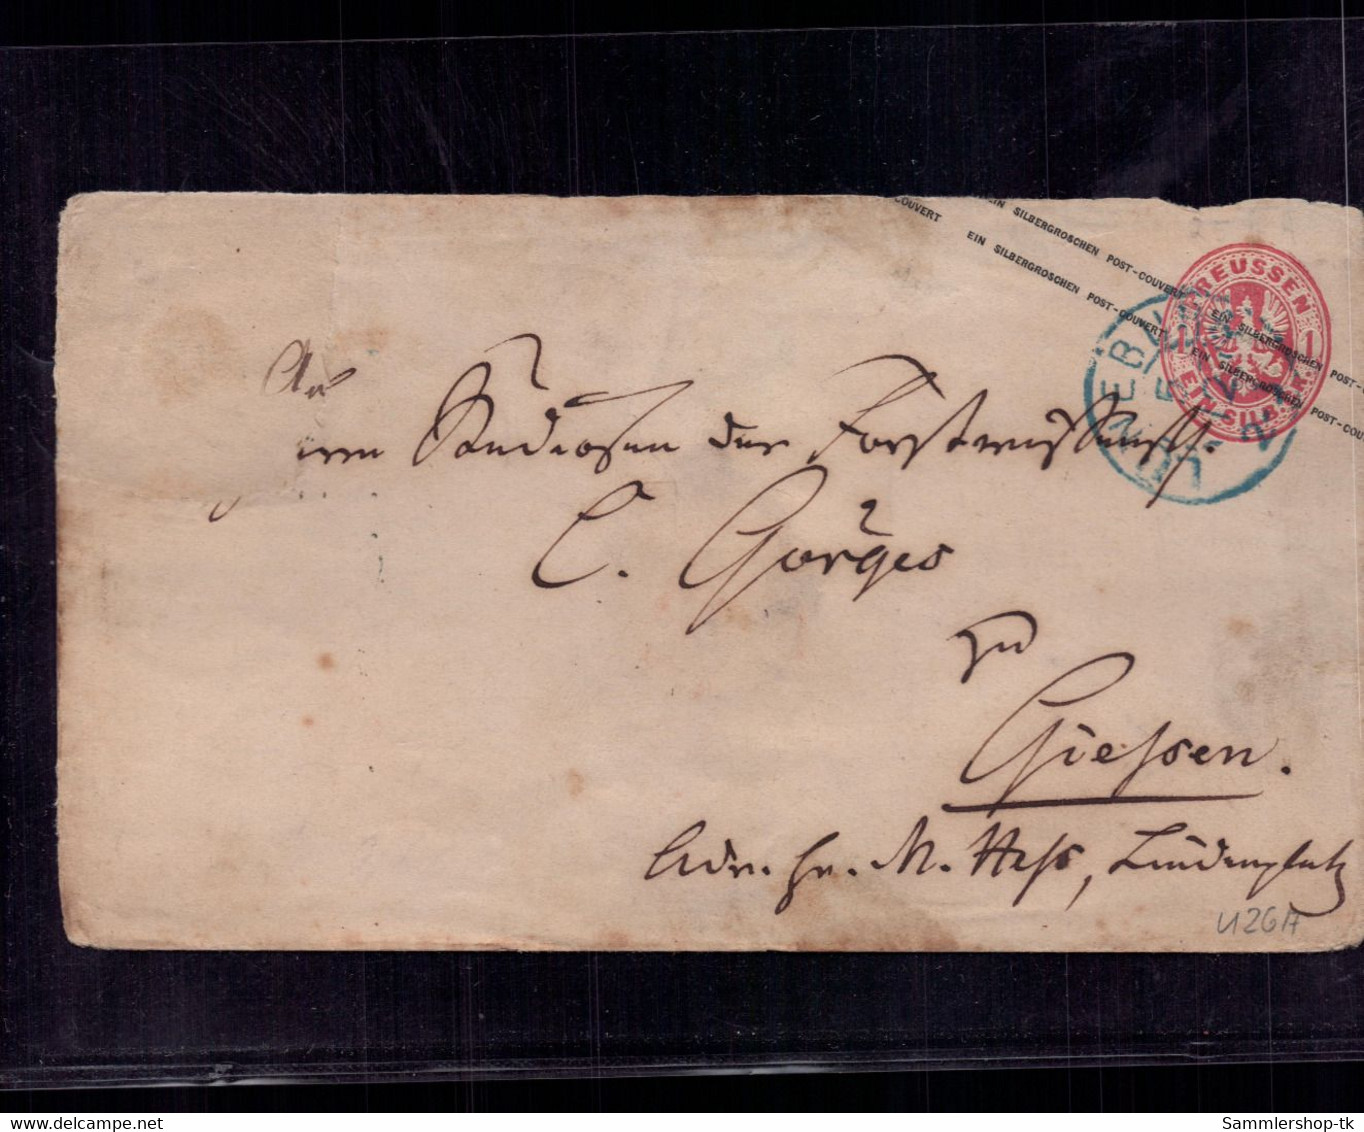 COUVERT
EIN SILBERGROSCHEN POST-COUVERT EIN SILBERGROSCHEN POST-
EIN SILBERGROSCHEN POST-COUVERT EIN SILBERGROSCHEN POST-COU
PREUSSEN
1 1
EIN SILB
LÜNEBURG
5 12
An
Studiosen der Forstwissensch.
C. Görges
zu
Giessen.
Adr. Hr. M. Hess, Lindenplatz
U26A
www.delcampe.net
Sammlershop-tk